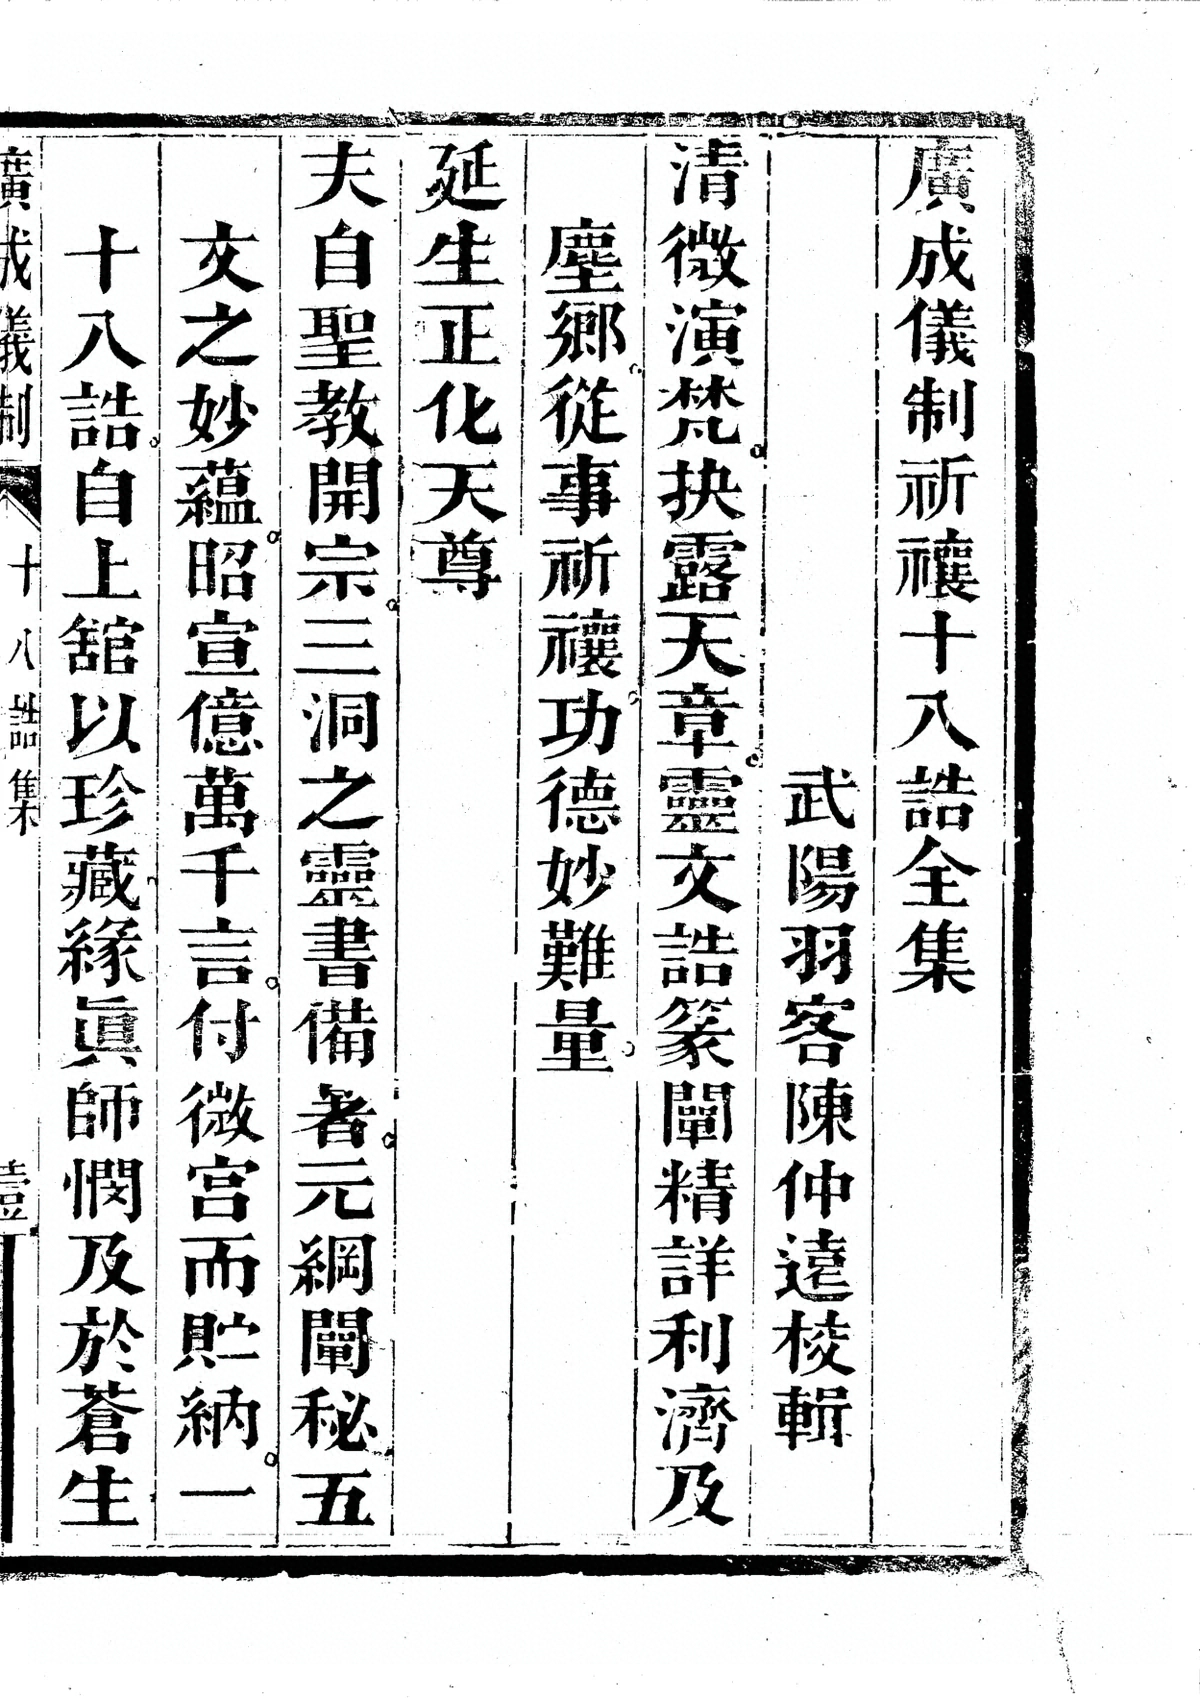 廣成儀制祈禳十八誥全集
武陽羽客陳仲遠校輯
清微演梵抉露天章靈文誥篆闡精詳利濟及
塵鄉從事祈禳功德妙難量
延生正化天尊
夫自聖教開宗三洞之靈書備著元綱闡秘五
文之妙蘊昭宣億萬千言付微宮而貯納一
十八誥自上舘以珍藏緣眞師憫及於蒼生
廣成儀制 十八誥集 壹